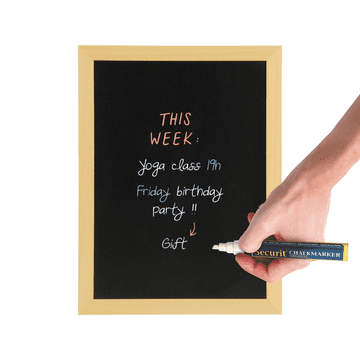 THIS
WEEK:
Yoga class 19h
Friday birthday
party !!
Gift
Securit CHALKMARKER